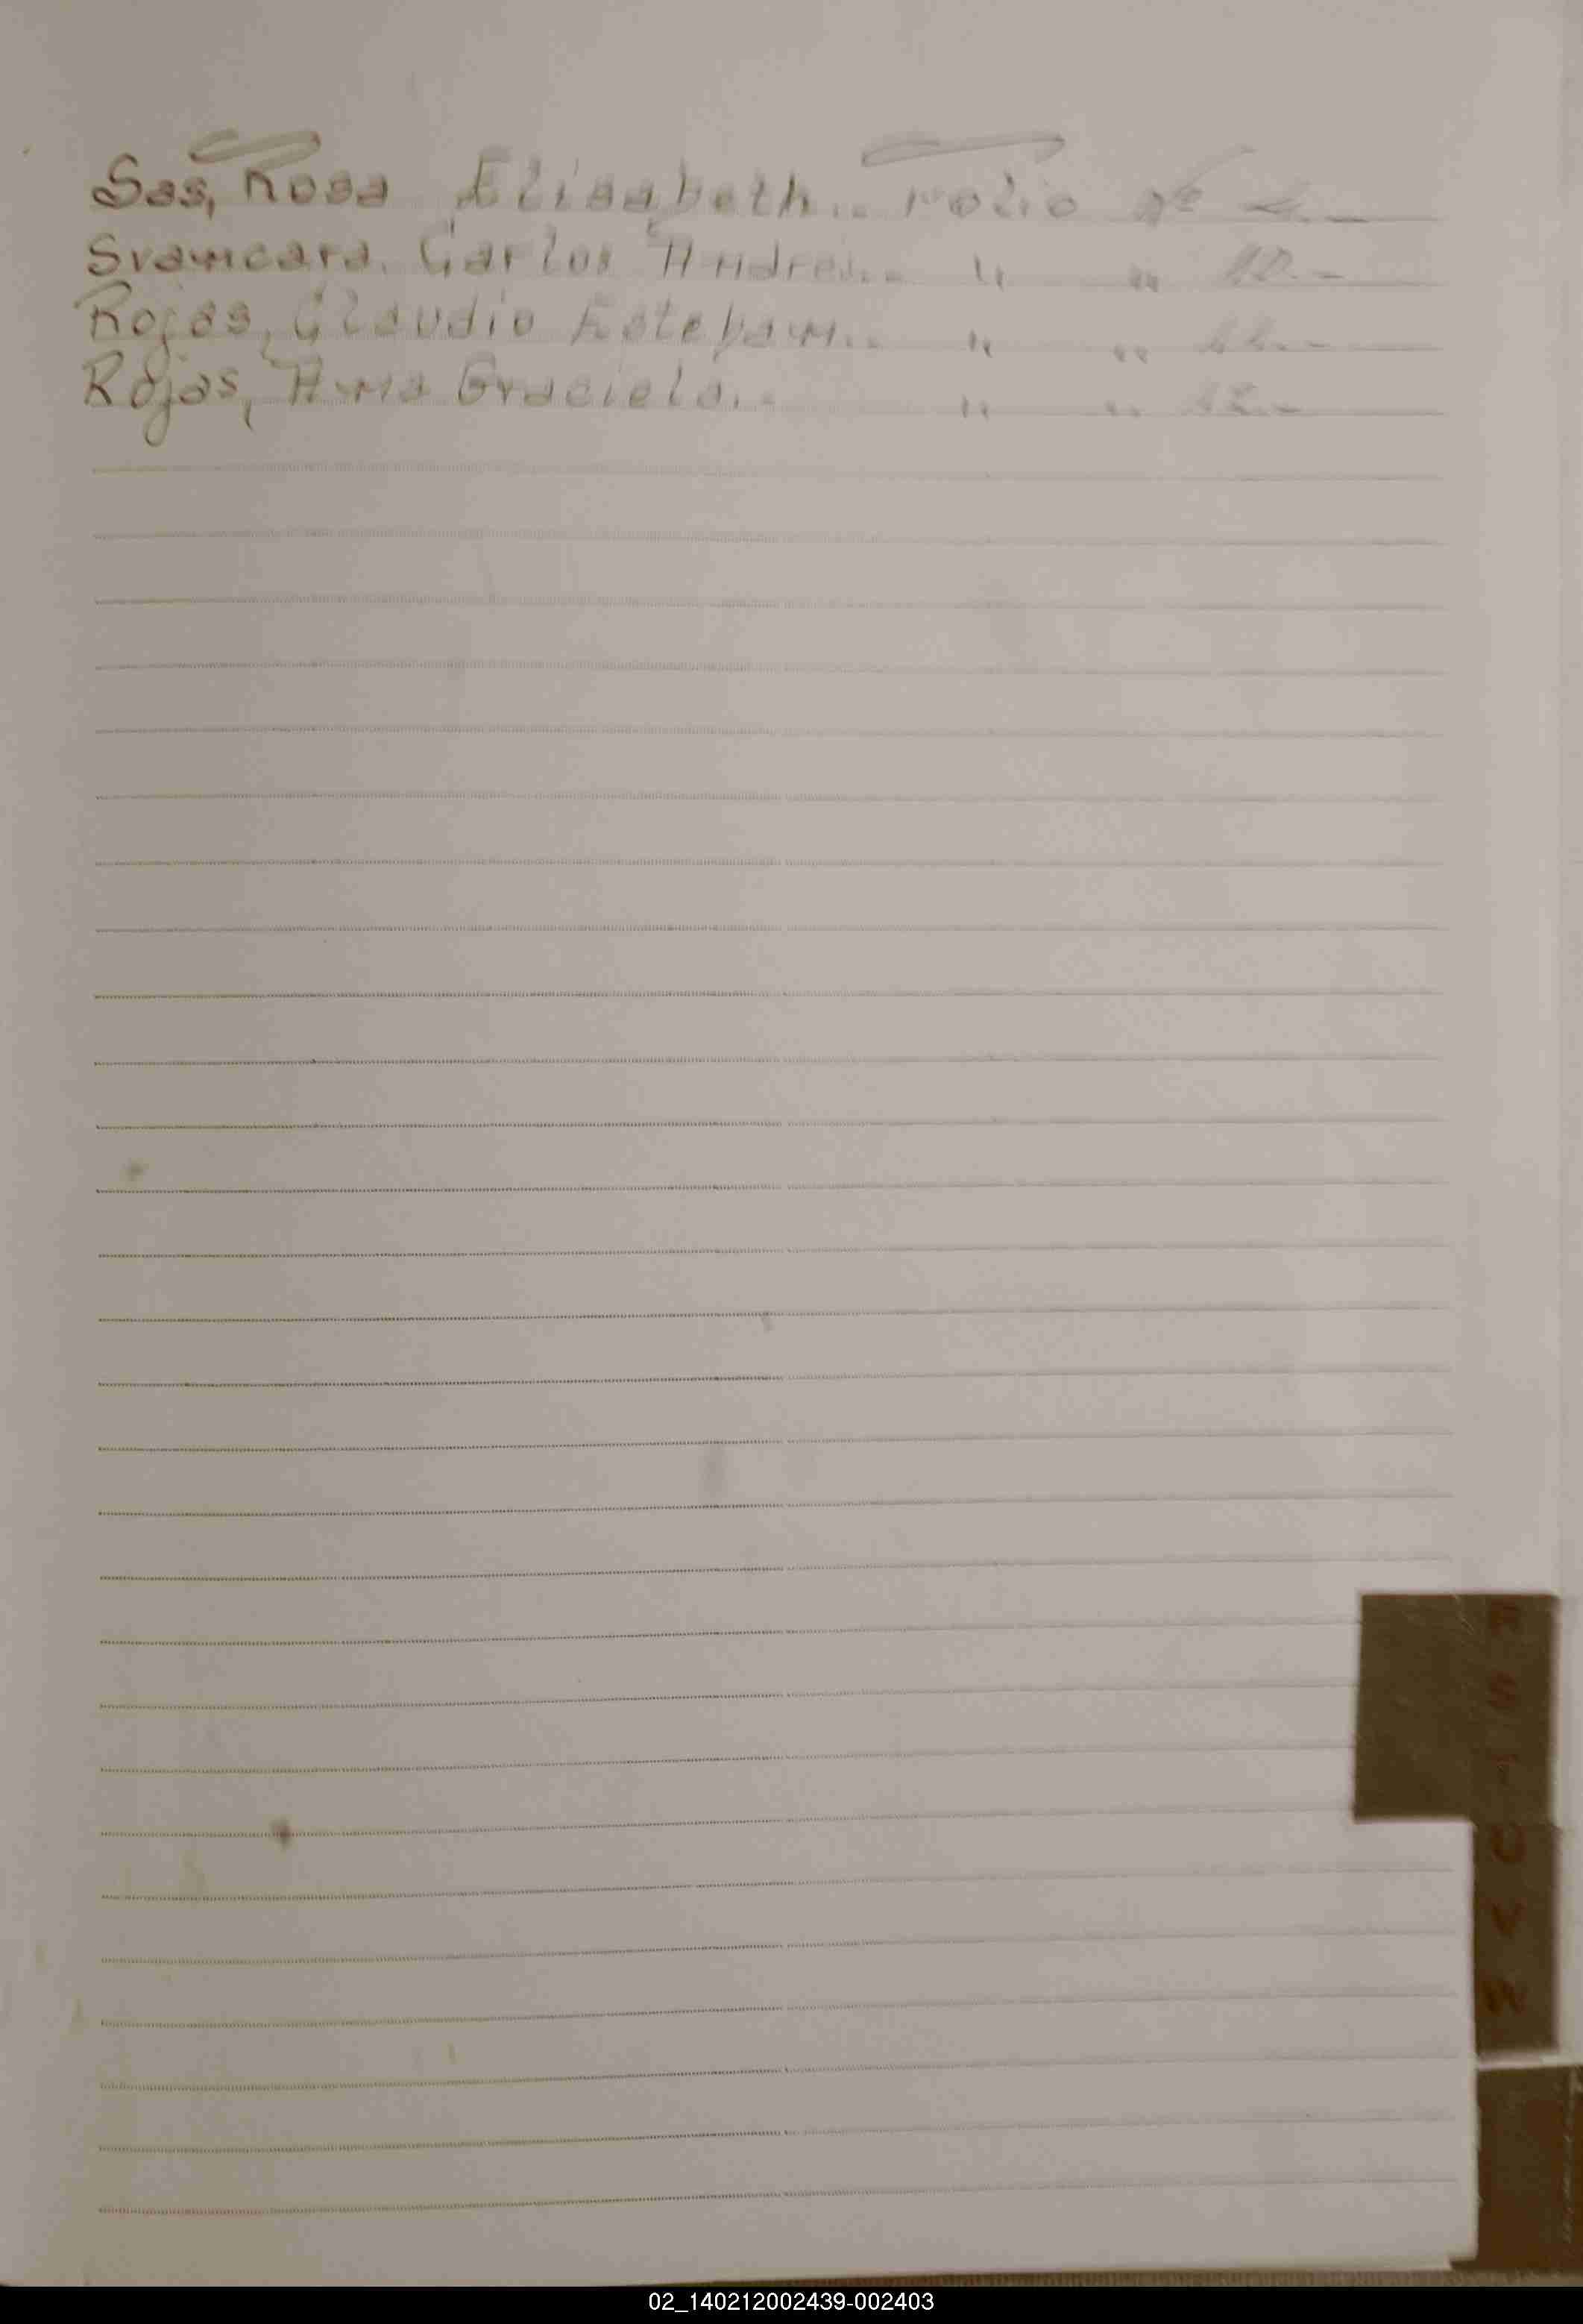 Sas, Rosa Elisabeth.. Folio Nº
Svamcara. Carlos Andres.. " " 10.-
Rojas, Claudio Esteban.. " " 11.-
Rojas, Ana Graciela.. " " 12.-
R
S
T
U
V
W
02_140212002439-002403